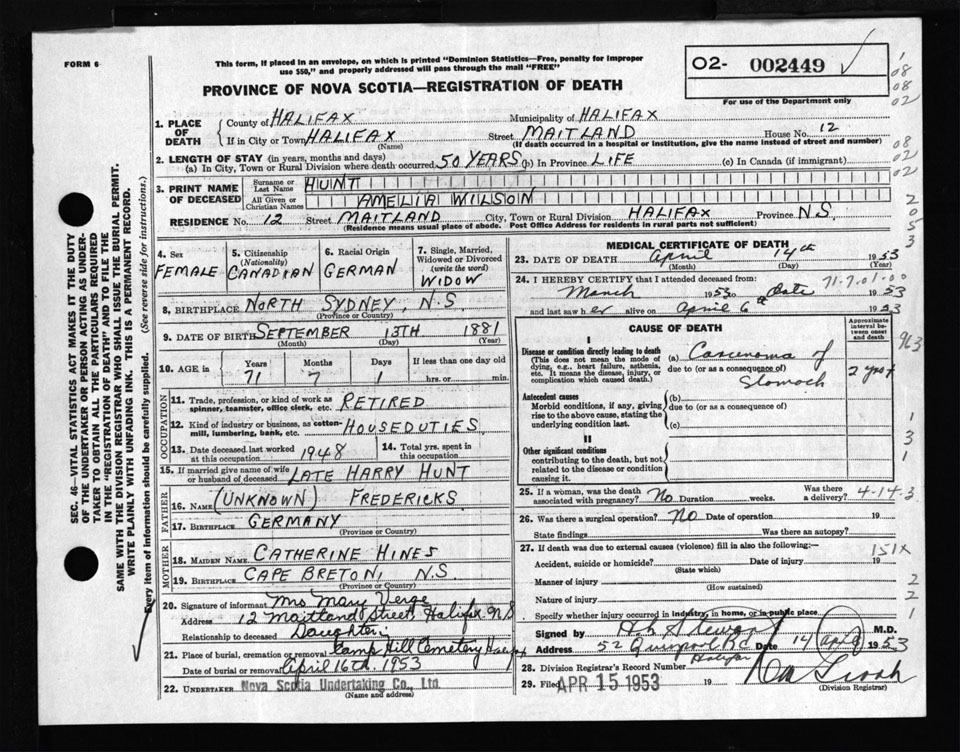 FORM 6
This form, if placed in an envelope, on which is printed "Dominion Statistics—Free, penalty for improper
use $50," and properly addressed will pass through the mail "FREE"
O2- 002449
For use of the Department only
PROVINCE OF NOVA SCOTIA—REGISTRATION OF DEATH
1. PLACE OF DEATH
County of HALIFAX Municipality of HALIFAX
If in City or Town HALIFAX Street MAITLAND House No. 12
(Name) (If death occurred in a hospital or institution, give the name instead of street and number)
2. LENGTH OF STAY (in years, months and days)
(a) In City, Town or Rural Division where death occurred 50 YEARS (b) In Province LIFE (c) In Canada (if immigrant)
3. PRINT NAME OF DECEASED
Surname or Last Name HUNT
All Given or Christian Names AMELIA WILSON
RESIDENCE No. 12 Street MAITLAND City, Town or Rural Division HALIFAX Province N.S.
(Residence means usual place of abode. Post Office Address for residents in rural parts not sufficient)
4. Sex
FEMALE
5. Citizenship (Nationality)
CANADIAN
6. Racial Origin
GERMAN
7. Single, Married, Widowed or Divorced (write the word)
WIDOW
8. BIRTHPLACE NORTH SYDNEY, N.S
(Province or Country)
9. DATE OF BIRTH SEPTEMBER 13TH 1881
(Month) (Day) (Year)
10. AGE in Years Months Days If less than one day old
71 7 1 hrs. or min.
OCCUPATION
11. Trade, profession, or kind of work as
spinner, teamster, office clerk, etc. RETIRED
12. Kind of industry or business, as cotton-
mill, lumbering, bank, etc. HOUSEDUTIES
13. Date deceased last worked
at this occupation 1948
14. Total yrs. spent in
this occupation
15. If married give name of wife
or husband of deceased LATE HARRY HUNT
FATHER
16. NAME (UNKNOWN) FREDERICKS
17. BIRTHPLACE GERMANY
(Province or Country)
MOTHER
18. MAIDEN NAME CATHERINE HINES
19. BIRTHPLACE CAPE BRETON, N.S.
(Province or Country)
20. Signature of informant Mrs Mary Verge
Address 12 Maitland Street, Halifax N.S
Relationship to deceased Daughter
21. Place of burial, cremation or removal Camp Hill Cemetery Halifax
Date of burial or removal April 16th. 1953
22. UNDERTAKER Nova Scotia Undertaking Co., Ltd.
(Name and address)
MEDICAL CERTIFICATE OF DEATH
23. DATE OF DEATH April 14th 1953
(Month) (Day) (Year)
24. I HEREBY CERTIFY that I attended deceased from:
March 1953 to Date 1953
71-7-01-00
and last saw her alive on April 6th 1953
CAUSE OF DEATH
Approximate interval between onset and death
I
Disease or condition directly leading to death
(This does not mean the mode of
dying, e.g., heart failure, asthenia,
etc. It means the disease, injury, or
complication which caused death.)
(a) Carcinoma of
due to (or as a consequence of)
Stomach
2 yrs
Antecedent causes
Morbid conditions, if any, giving
rise to the above cause, stating the
underlying condition last.
(b)
due to (or as a consequence of)
(c)
II
Other significant conditions
contributing to the death, but not
related to the disease or condition
causing it.
25. If a woman, was the death
associated with pregnancy? No Duration weeks. Was there
a delivery? 4-14-3
26. Was there a surgical operation? No Date of operation 19
State findings Was there an autopsy?
27. If death was due to external causes (violence) fill in also the following:—
151X
Accident, suicide or homicide? Date of injury 19
(State which)
Manner of injury
(How sustained)
Nature of injury
Specify whether injury occurred in industry, in home, or in public place
Signed by Stewart M.D.
Address 52 Date 14 April 1953
Halifax
28. Division Registrar's Record Number
29. Filed APR 15 1953 19
(Division Registrar)
SEC. 46—VITAL STATISTICS ACT MAKES IT THE DUTY
OF THE UNDERTAKER OR PERSON ACTING AS UNDER-
TAKER TO OBTAIN ALL THE PARTICULARS REQUIRED
IN THE "REGISTRATION OF DEATH" AND TO FILE THE
SAME WITH THE DIVISION REGISTRAR WHO SHALL ISSUE THE BURIAL PERMIT.
WRITE PLAINLY WITH UNFADING INK. THIS IS A PERMANENT RECORD.
Every item of information should be carefully supplied. (See reverse side for instructions.)
1
08
08
02
08
02
2
0
5
3
963
1
3
1
2
2
1